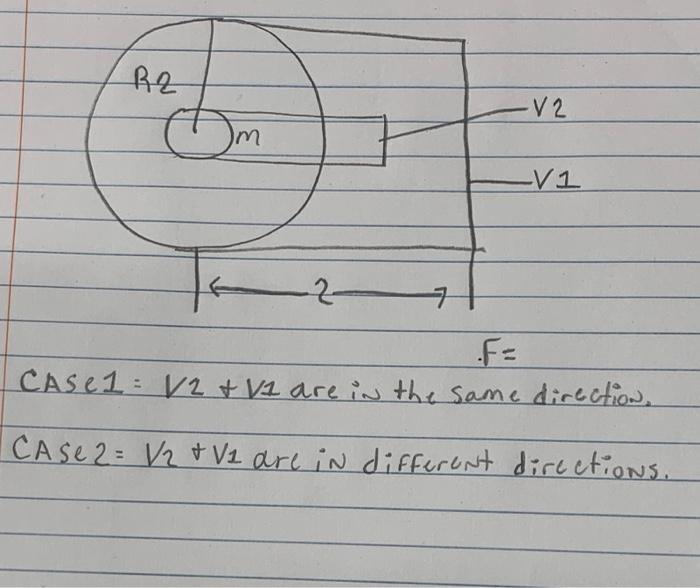 R2
m
V2
V1
2
.F=
CASE1= V2 + V1 are in the same direction.
CASE2= V2 + V1 are in different directions.